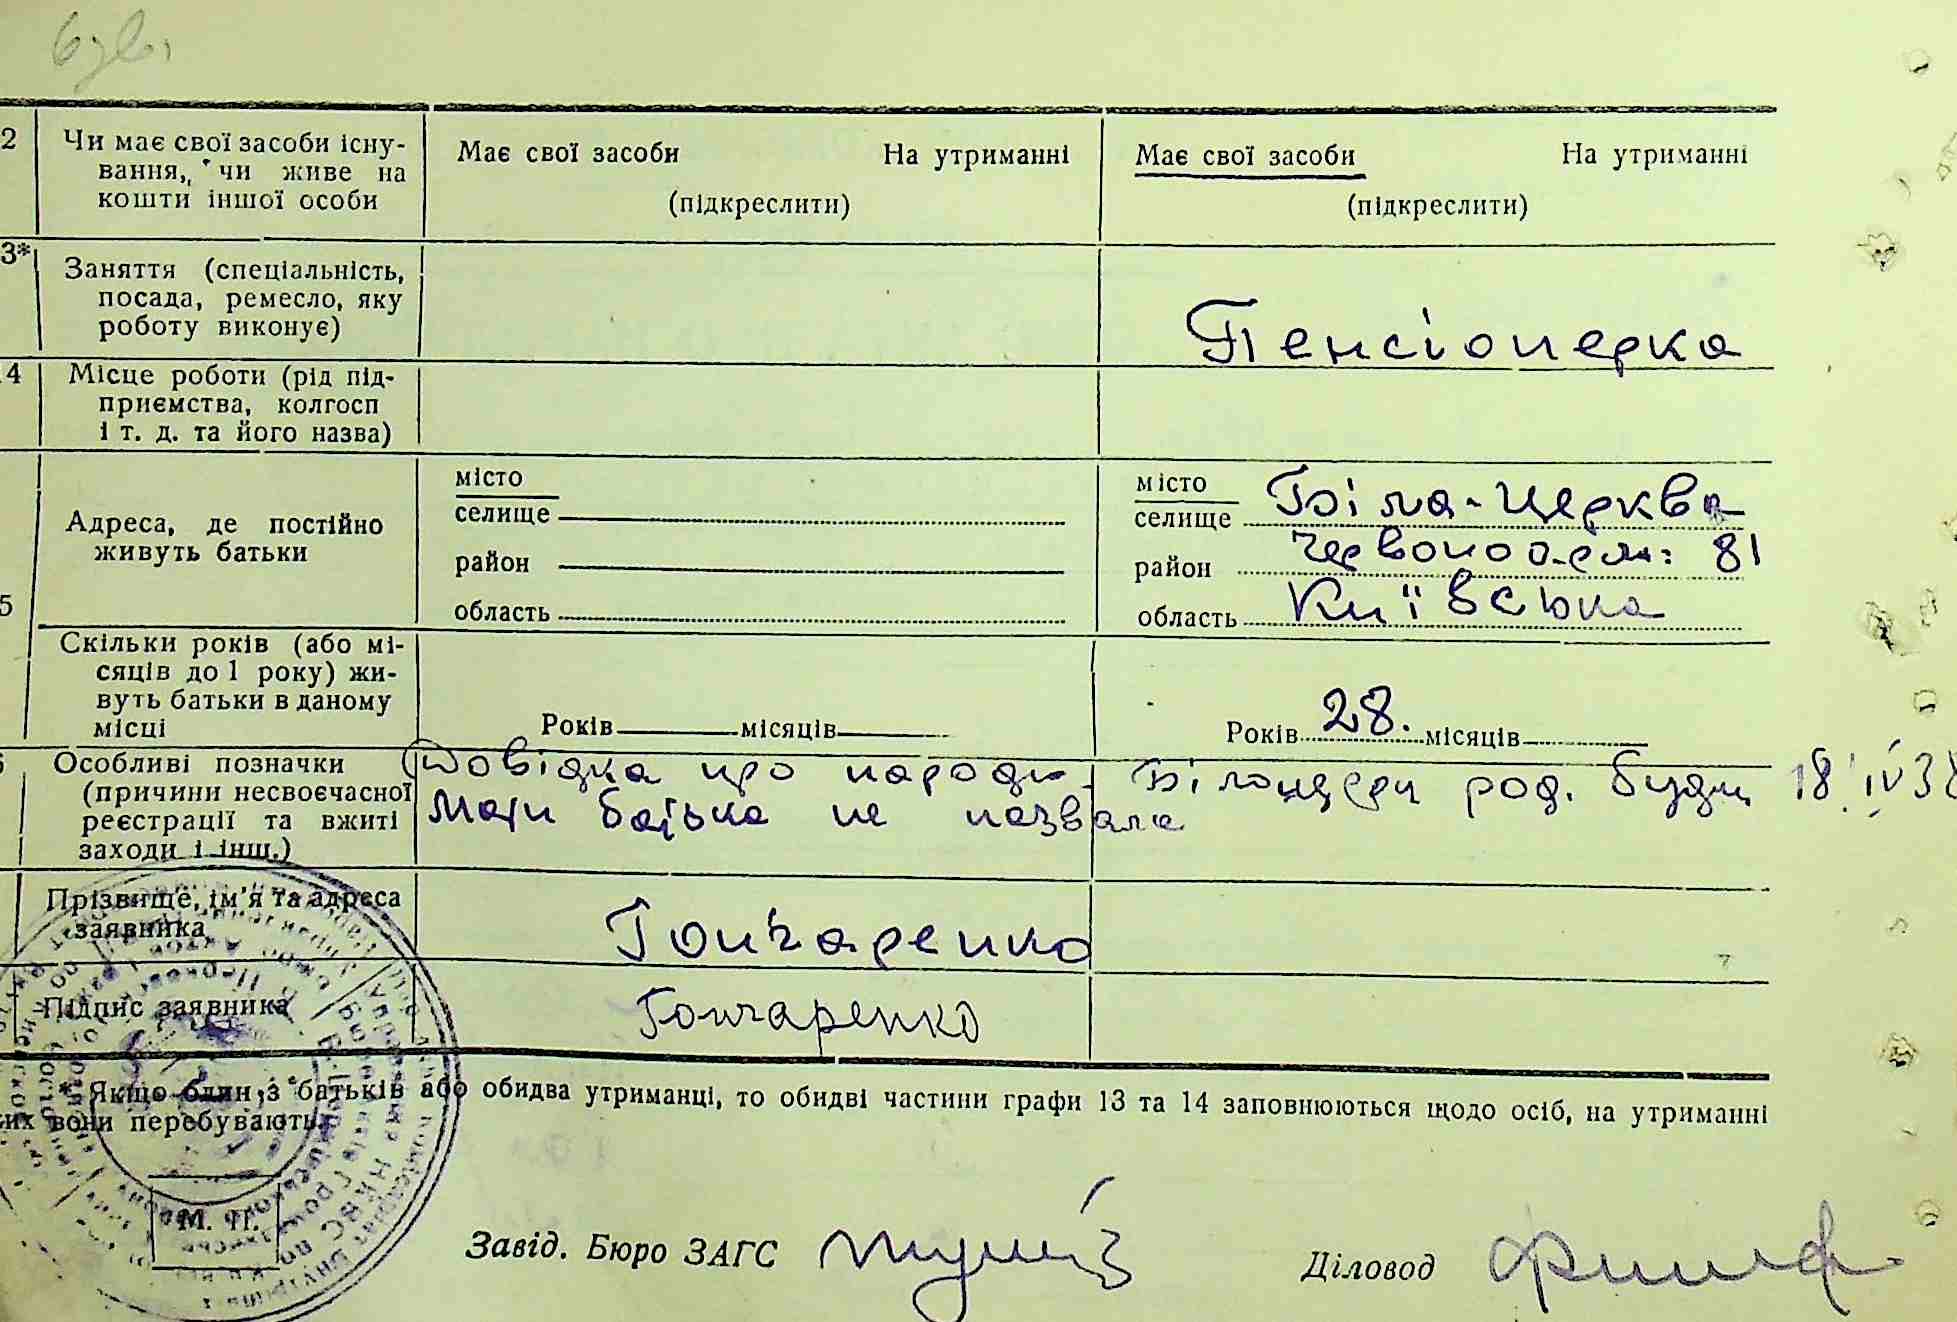 2 Чи має свої засоби існу- Має свої засоби На утриманні Має свої засоби На утриманні
вання, чи живе на
кошти іншої особи (підкреслити) (підкреслити)
3* Заняття (спеціальність,
посада, ремесло, яку
роботу виконує) Пенсіонерка
14 Місце роботи (рід під-
приємства, колгосп
і т. д. та його назва)
місто місто Біла-Церква
селище селище
Адреса, де постійно
живуть батьки район район Червоноарм: 81
5 область область Київська
Скільки років (або мі-
сяців до 1 року) жи-
вуть батьки в даному
місці Років місяців Років 28. місяців
Особливі позначки Довідка про народж. Білоцерк род. будин 18 IV 38
(причини несвоєчасної
реєстрації та вжиті Мати батька не назвала
заходи і інш.)
Прізвище, ім'я та адреса
заявника Гончаренко
Підпис заявника Гончаренко
* Якщо один з батьків або обидва утриманці, то обидві частини графи 13 та 14 заповнюються щодо осіб, на утриманні
их вони перебувають.
М. П.
Завід. Бюро ЗАГС Діловод